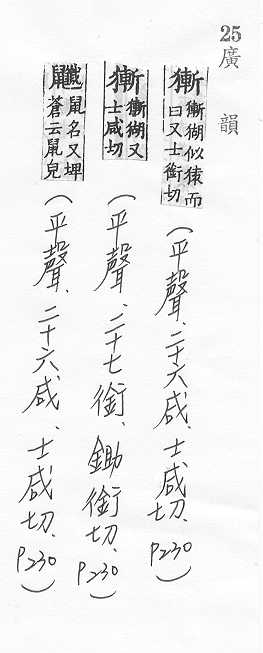 25
廣韻
獑 獑猢似猿而
曰又士銜切
(平聲、二十六咸、士咸切、P230)
獑 獑猢又
士咸切
(平聲、二十七銜、鋤銜切、P230)
鼠名又埤
蒼云鼠皃
(平聲、二十六咸、士咸切、P230)